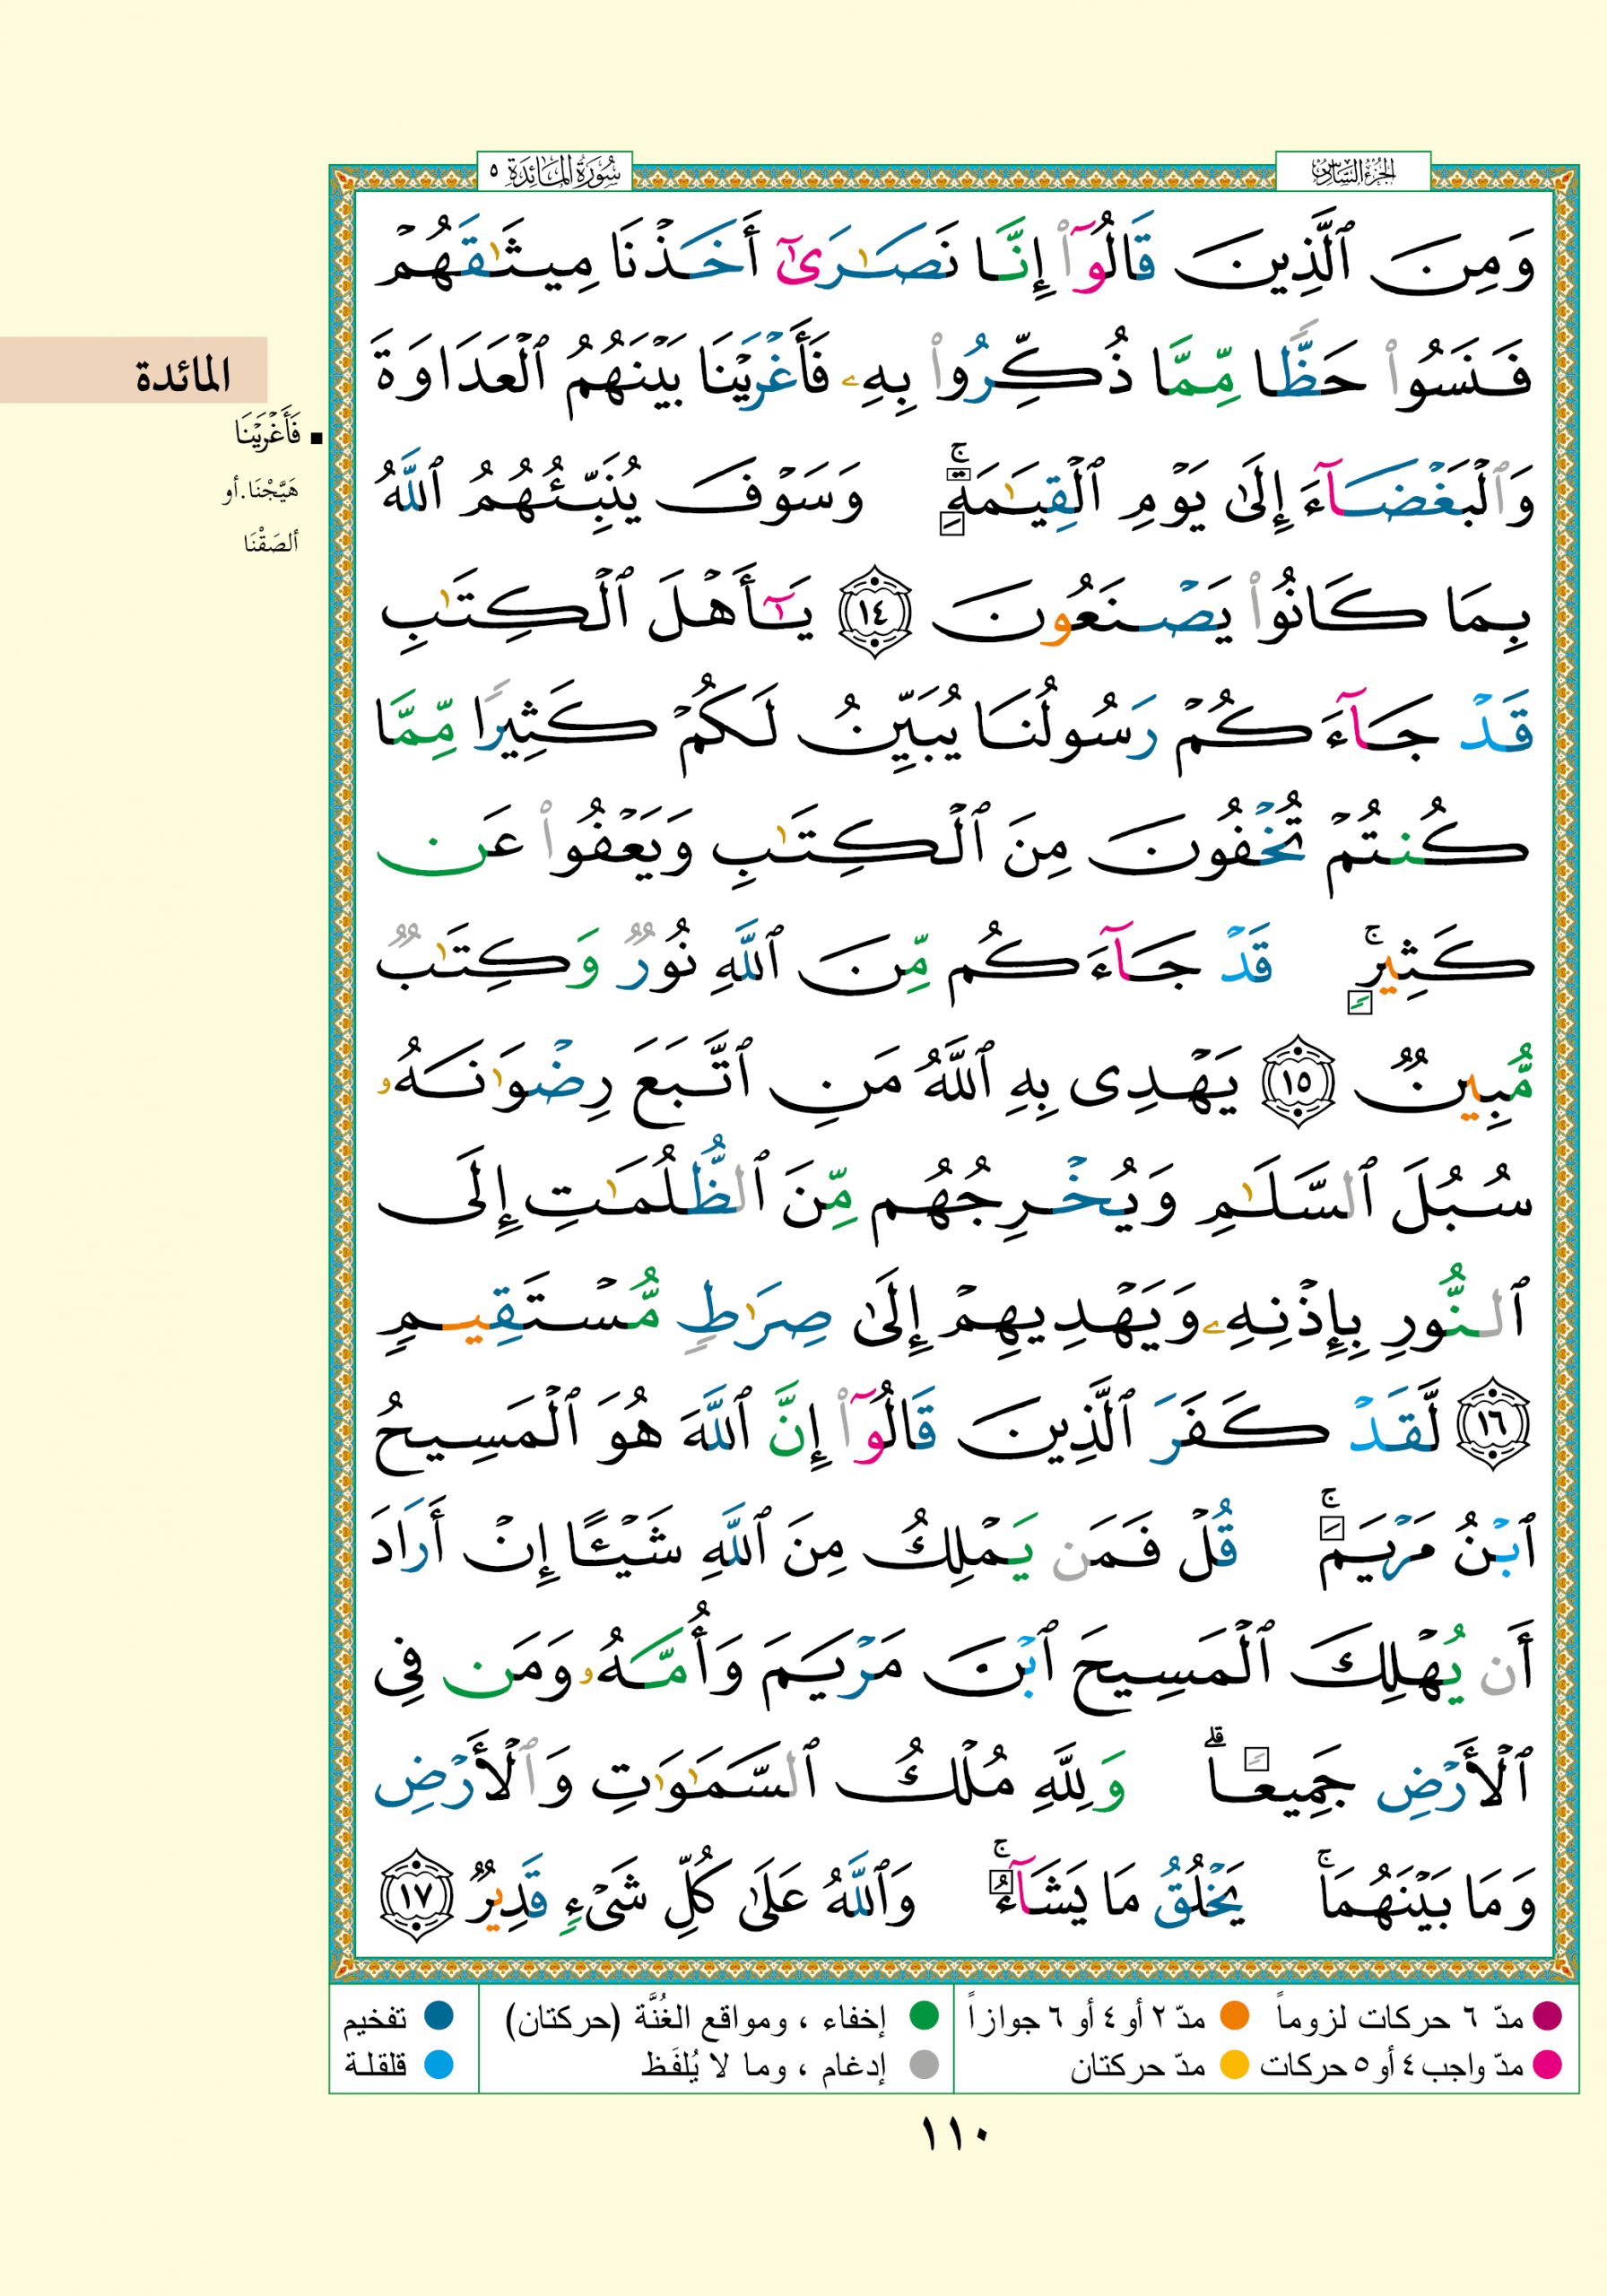 الجزء السادس
سورة المائدة ٥
وَمِنَ ٱلَّذِينَ قَالُوٓا۟ إِنَّا نَصَـٰرَىٰٓ أَخَذْنَا مِيثَـٰقَهُمْ
فَنَسُوا۟ حَظًّا مِّمَّا ذُكِّرُوا۟ بِهِۦ فَأَغْرَيْنَا بَيْنَهُمُ ٱلْعَدَاوَةَ
وَٱلْبَغْضَآءَ إِلَىٰ يَوْمِ ٱلْقِيَـٰمَةِ ۚ وَسَوْفَ يُنَبِّئُهُمُ ٱللَّهُ
بِمَا كَانُوا۟ يَصْنَعُونَ ١٤ يَـٰٓأَهْلَ ٱلْكِتَـٰبِ
قَدْ جَآءَكُمْ رَسُولُنَا يُبَيِّنُ لَكُمْ كَثِيرًا مِّمَّا
كُنتُمْ تُخْفُونَ مِنَ ٱلْكِتَـٰبِ وَيَعْفُوا۟ عَن
كَثِيرٍ ۚ قَدْ جَآءَكُم مِّنَ ٱللَّهِ نُورٌ وَكِتَـٰبٌ
مُّبِينٌ ١٥ يَهْدِى بِهِ ٱللَّهُ مَنِ ٱتَّبَعَ رِضْوَٰنَهُۥ
سُبُلَ ٱلسَّلَـٰمِ وَيُخْرِجُهُم مِّنَ ٱلظُّلُمَـٰتِ إِلَى
ٱلنُّورِ بِإِذْنِهِۦ وَيَهْدِيهِمْ إِلَىٰ صِرَٰطٍ مُّسْتَقِيمٍ
١٦ لَّقَدْ كَفَرَ ٱلَّذِينَ قَالُوٓا۟ إِنَّ ٱللَّهَ هُوَ ٱلْمَسِيحُ
ٱبْنُ مَرْيَمَ ۚ قُلْ فَمَن يَمْلِكُ مِنَ ٱللَّهِ شَيْـًٔا إِنْ أَرَادَ
أَن يُهْلِكَ ٱلْمَسِيحَ ٱبْنَ مَرْيَمَ وَأُمَّهُۥ وَمَن فِى
ٱلْأَرْضِ جَمِيعًا ۗ وَلِلَّهِ مُلْكُ ٱلسَّمَـٰوَٰتِ وَٱلْأَرْضِ
وَمَا بَيْنَهُمَا ۚ يَخْلُقُ مَا يَشَآءُ ۚ وَٱللَّهُ عَلَىٰ كُلِّ شَىْءٍ قَدِيرٌ ١٧
المائدة
▪ فَأَغْرَيْنَا
هَيَّجْنَا.أو
ألصَقْنَا
مدّ ٦ حركات لزوماً
مدّ ٢ أو ٤ أو ٦ جوازاً
إخفاء ، ومواقع الغُنَّة (حركتان)
تفخيم
مدّ واجب ٤ أو ٥ حركات
مدّ حركتان
إدغام ، وما لا يُلفَظ
قلقلة
١١٠